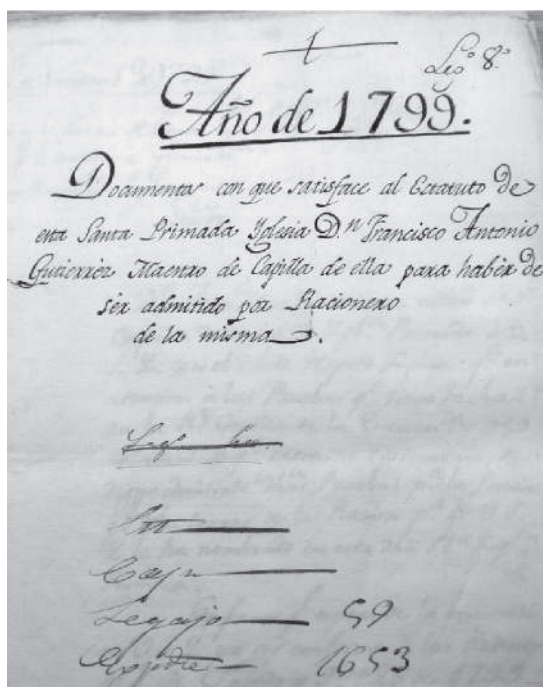 Leg.º 8.º
Año de 1799.
Documentos con que satisface al Estatuto de
esta Santa Primada Yglesia D.n Francisco Antonio
Gutierrez Maestro de Capilla de ella para haber de
ser admitido por Racionero
de la misma.
Legajo 59
Expdte 1653